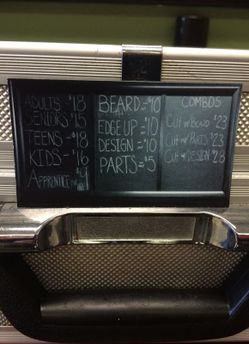 ADULTS-$18
SENIORS-$15
TEENS-$18
KIDS-$16
APPRENTICE $9
BEARD-$10
EDGE UP-$10
DESIGN-$10
PARTS-$5
COMBOS
CUT W/ BEARD $23
CUT W/ PARTS $23
CUT W/ DESIGN $28